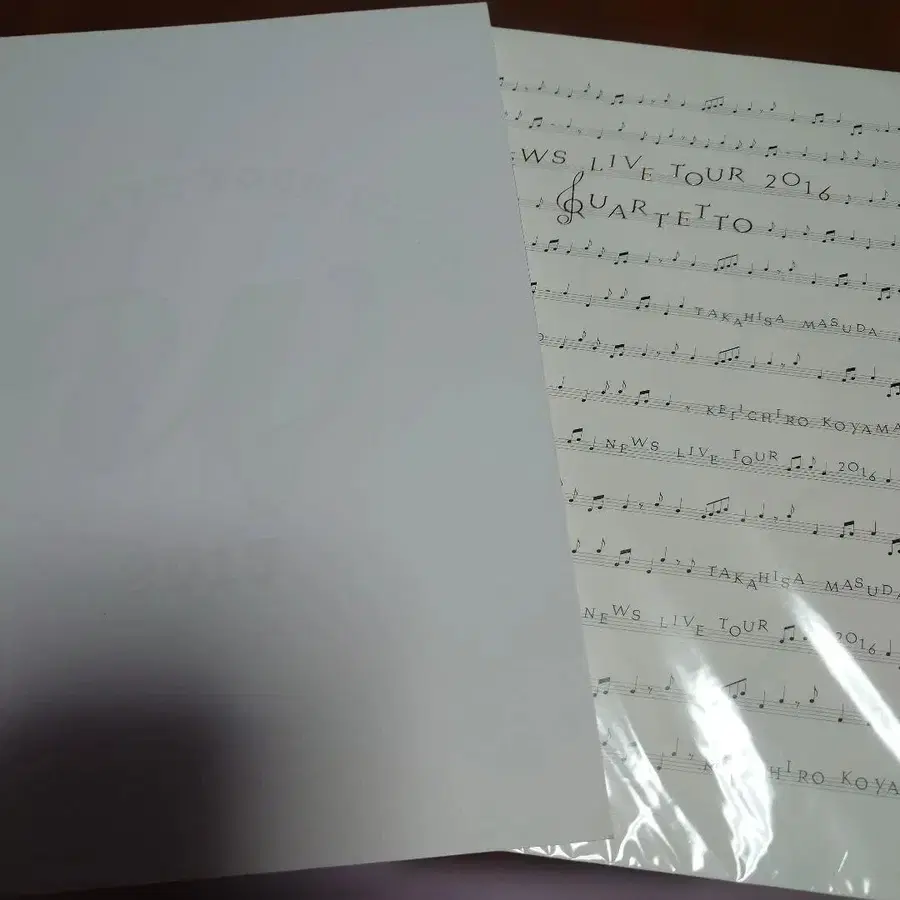 EWS LIVE TOUR 2016
QUARTETTO
TAKAHISA MASUDA
KEIICHIRO KOYAMA
NEWS LIVE TOUR 2016
TAKAHISA MASUDA
NEWS LIVE TOUR 2016
HIRO KOYA